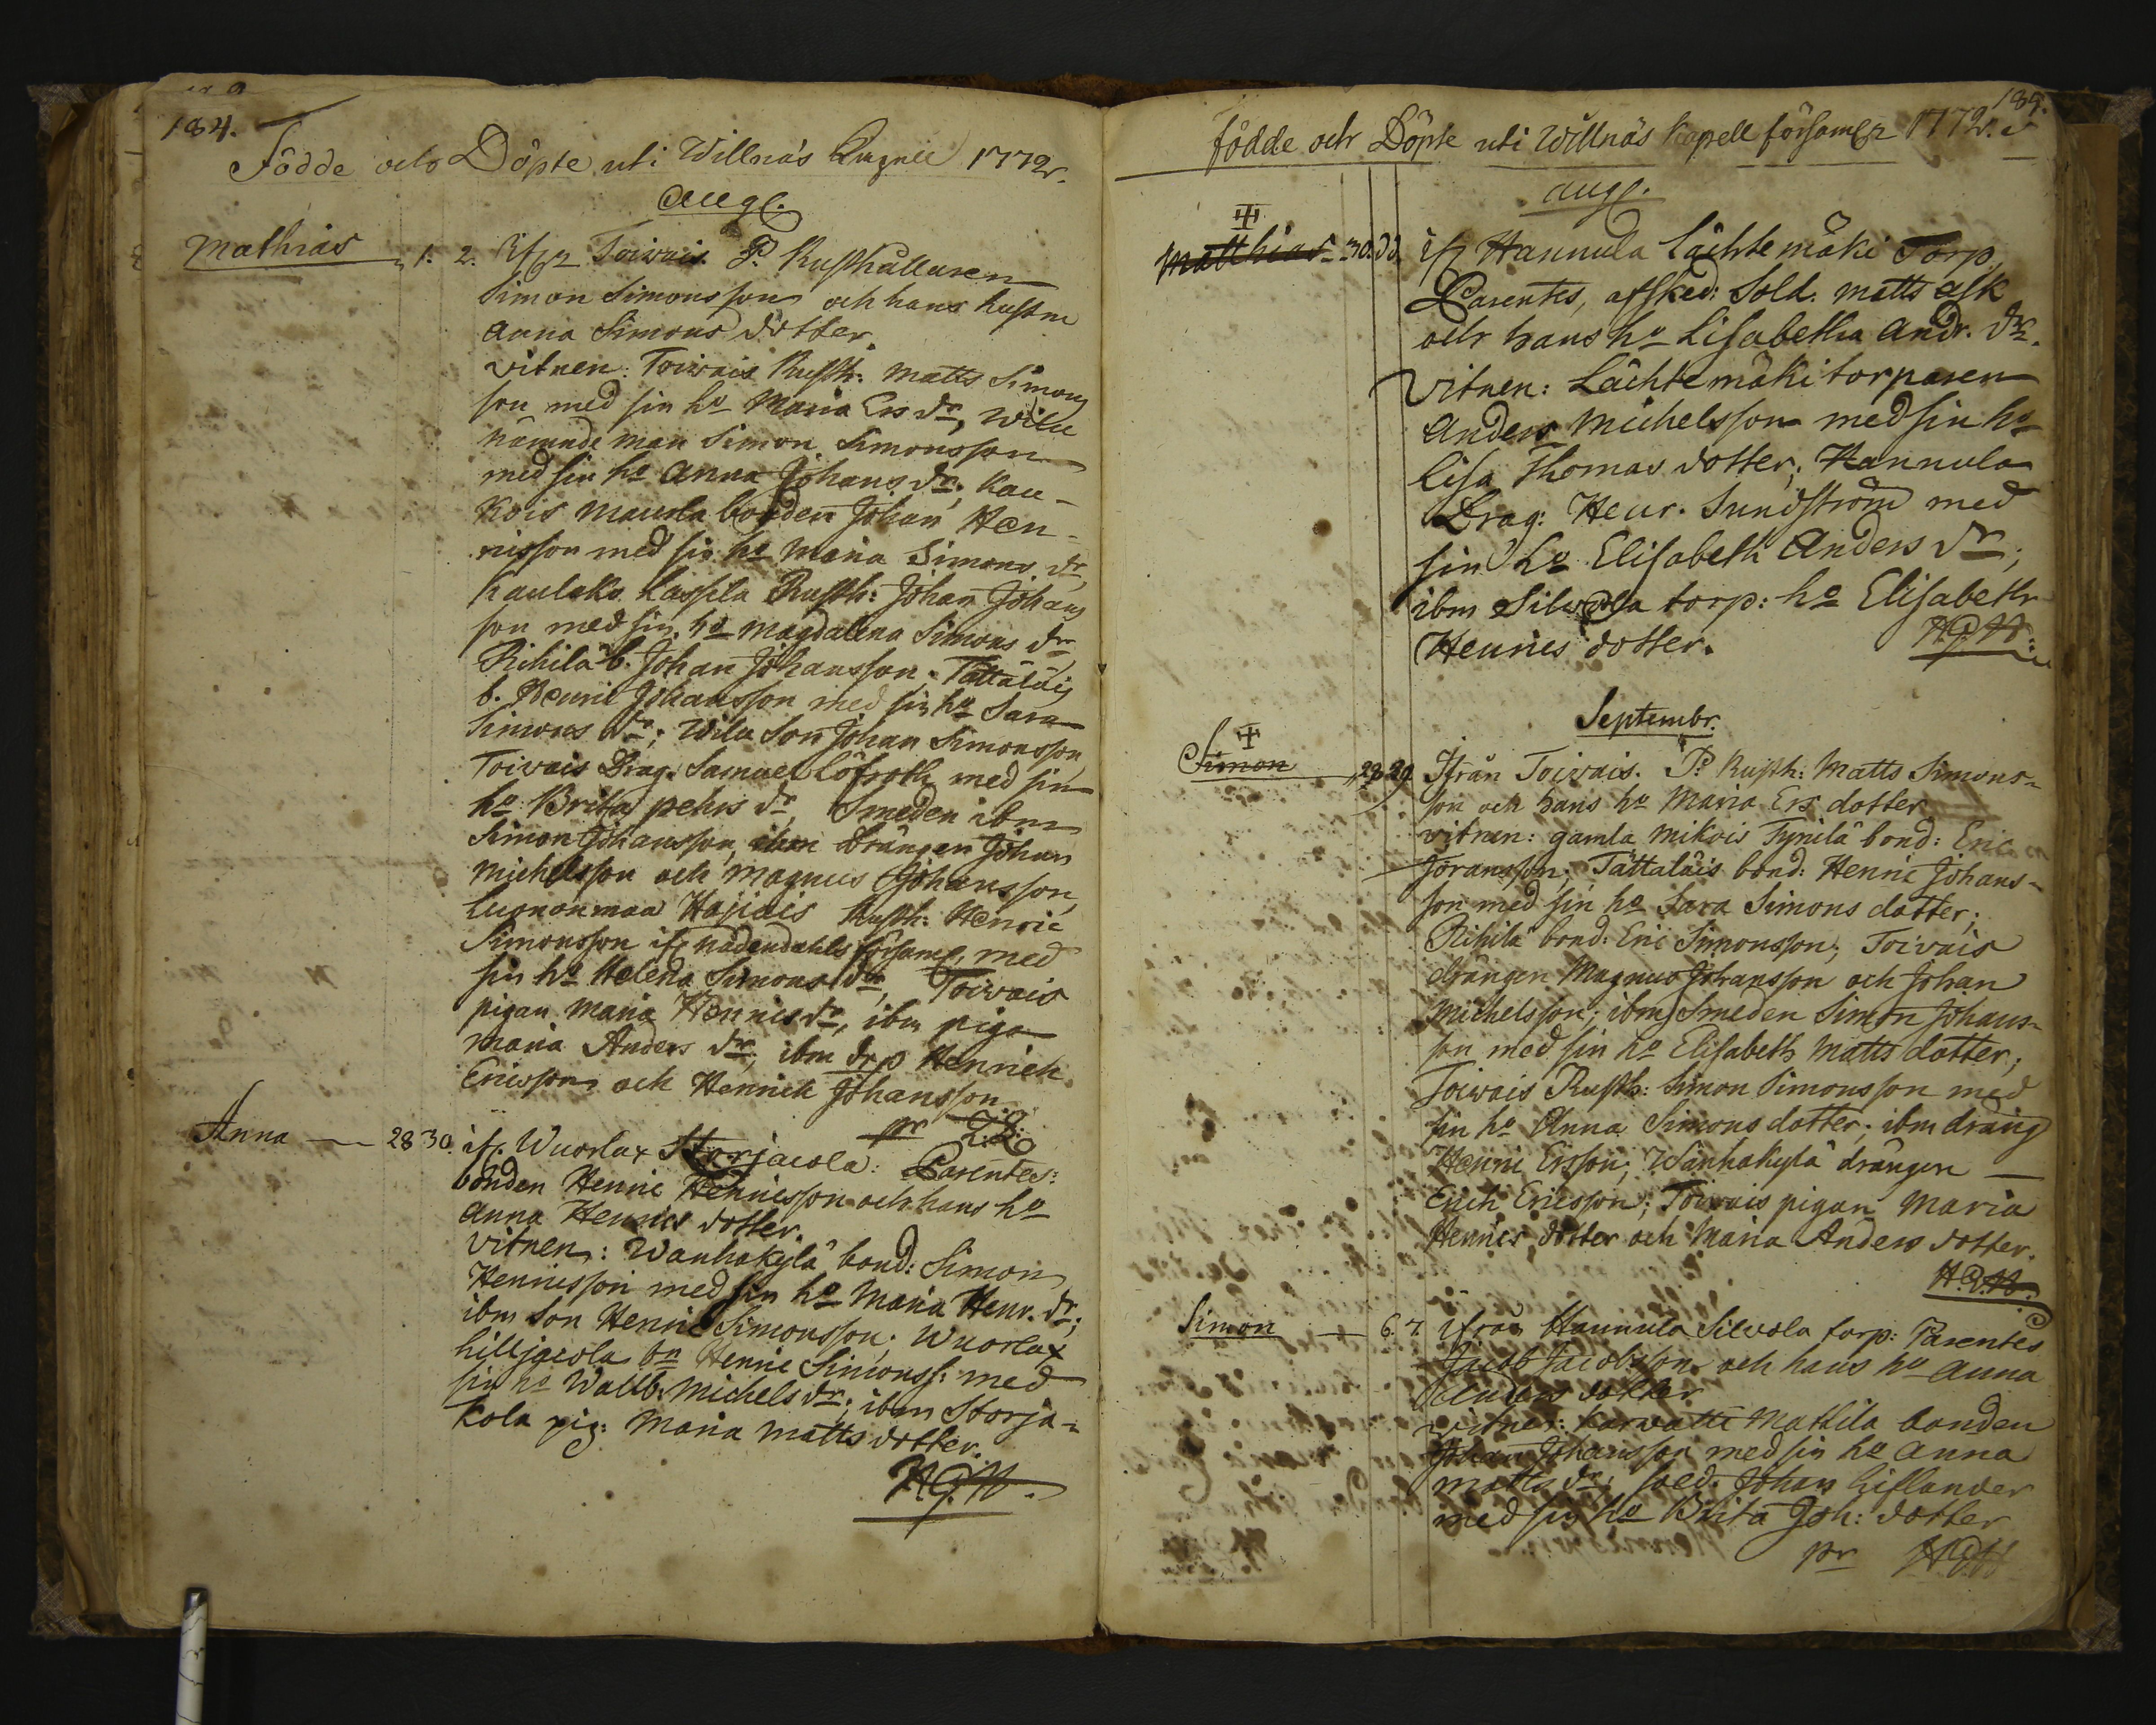 184.
Födde och Döpte uti Willnäs 1772.
Aug.
Mathias 1. 2. Toivais. P. Rusthållaren
Simon Simonsson och hans hustru
Anna Simons dotter.
vitnen: Toivais Rusth: Matts Simons
son med sin ho Maria Ers dr, Wilu
nämnde man Simon Simonsson
med sin ho Anna Johans dr, Kau-
kois bonden Johan Hen-
risson med sin ho Maria Simons dr
Kaulako Lassila Rusth: Johan Johans
son med sin ho Magdalena Simons dr
Rihilä b. Johan Johansson, Tättäläis
b. Henric Johansson med sin ho Sara
Simons dr; Wilu Son Johan Simonsson
Toivais Drag. Samuel Löfroth med sin
ho Brita pehrs dr, Smeden ibm
Simon Johansson, ibm drängen Johan
Michelsson och Magnus Johansson,
Luononmaa Rusth: Henric
Simonsson if. nådendahls församl, med
sin ho Helena Simons dr, Toivais
pigan Maria Henrics dr, ibm piga
Maria Anders dr, ibm Henrich
Ericsson och Henrich Johansson.
pr
Anna — 28 30. if. Wuorlax Storjacola: Parentes:
bonden Henric Henricsson och hans ho
Anna Henrics dotter.
vitnen: Wanhakylä bond: Simon
Henricsson med sin ho Maria Henr. dr;
ibm son Henric Simonsson; Wuorlax
Lilljacola bn Henric Simonss: med
sin ho Wallb. Michels dr; ibm Storja-
kola pig: Maria Matts dotter.
H.G.W.
185.
födde och Döpte uti Willnäs Kapell församl 1772.
Aug.
Matthias 30. dd. if Hannula Lächtemäki Torp,
Parentes, afsked: Sold. Matts Ask
och hans ho Lisabetha Andr. dr.
Vitnen: Lächtemäki torparen
Anders Michelsson med sin ho
Lisa Thomas dotter; Hannula
Drag: Henr. Sundström med
sin ho Elisabeth Anders dr;
ibm Silvola torp: ho Elisabeth
Henrics dotter. H.G.W.
Septembr.
Simon 28. 29. Ifrån Toivais. P. Rusth: Matts Simons-
son och hans ho Maria Ers dotter
vitnen: gamla Mikois Tynilä bond: Eric
Joransson; Tättaläis bond: Henric Johans-
son med sin ho Sara Simons dotter;
Rihilä bond: Eric Simonsson; Toivais
drängen Magnus Johansson och Johan
Michelsson; ibm Smeden Simon Johans-
son med sin ho Elisabeth Matts dotter;
Toivais Rusth: Simon Simonsson med
sin ho Anna Simons dotter; ibm dräng
Henric Ersson; Wanhakylä drängen —
Erich Ericsson; Toivais pigan Maria
Henrics dotter och Maria Anders dotter.
H.G.W.
Simon — 6. 7. ifrån Hannula Silvola torp: Parentes
Jacob Jacobsson och hans ho Anna
Anders dotter
vitnen: Karvatti Mattila bonden
Johan Johansson med sin ho Anna
Matts dr; Johan Liflander
med sin ho Brita Joh: dotter
pr H.G.W